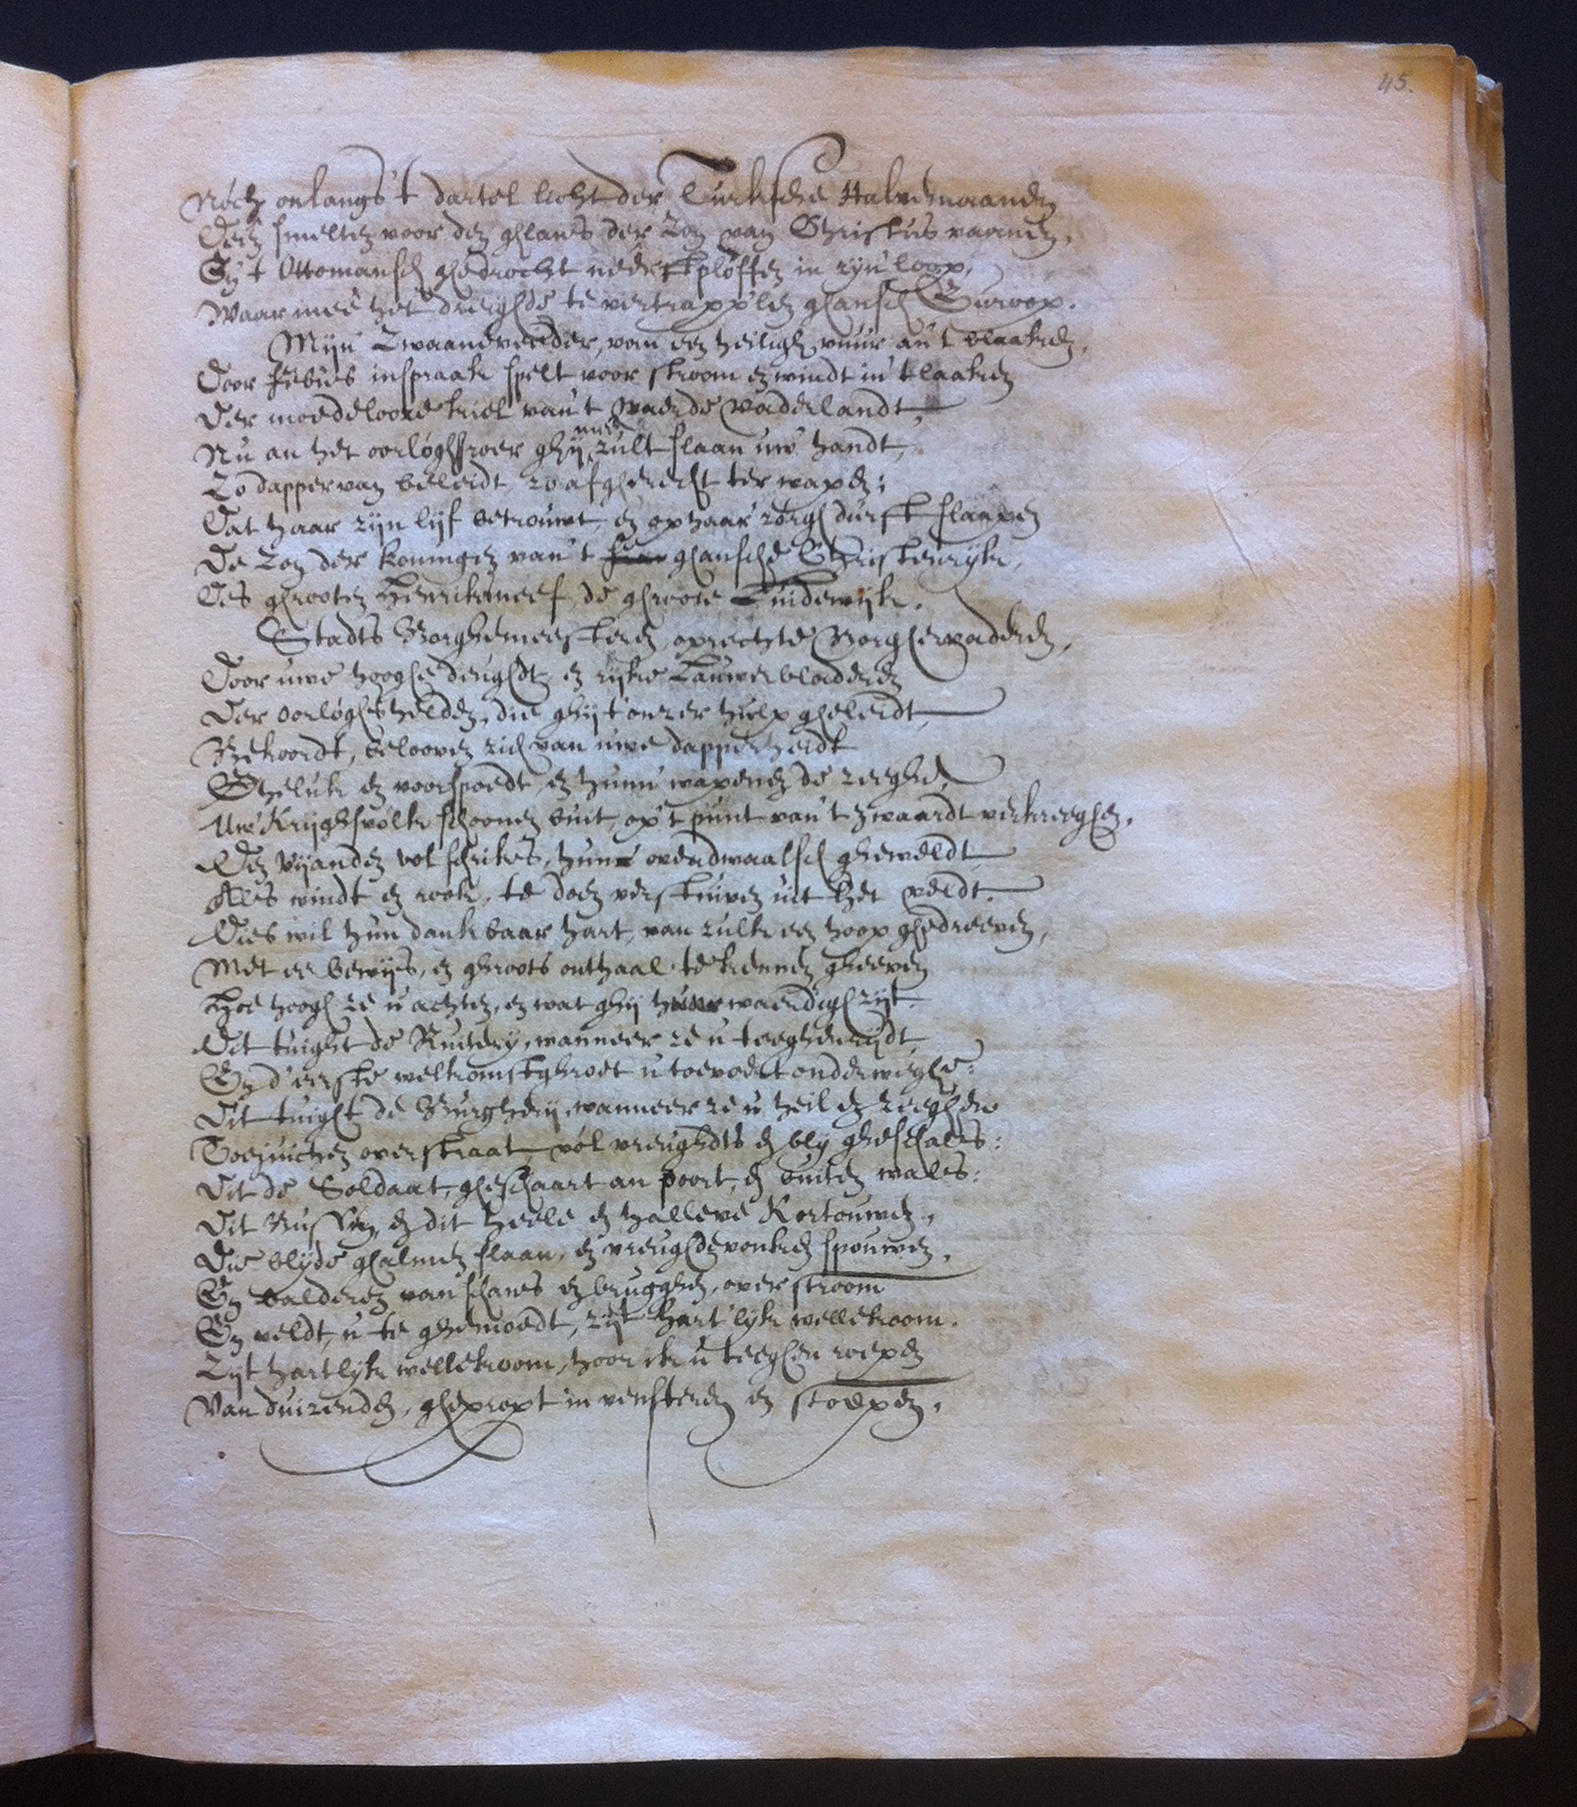 45.
Nóch onlangs 't dartel licht der Turksche Halvemaanen
Deez smelten voor den glans der Zon van Christus vaanen,
En 't Ottomansch ghedrocht neêrploffen in zijn loop,
Waar meê het dreighde te vertrapp'len gansch Euroop.
Mijn' Zwaaneveeder, van een heiligh vuur an 't blaaken,
Door Febus inspraak spelt voor stroom en windt in 't laaken
Der moedelooze kiel van 't waerde Vaderlandt,
Nu an het oorloghsroer ghij zult slaan uw' handt,
Zo dapper van beleidt, zo afgherecht ter wapen;
Dat haar zijn lijf betrouwt, en op haar zorgh durft slaapen
De Zon der koningen van 't gansche Christenrijk,
Des grooten Henriks neef, de groote Luidewijk.
Stadts Borghemeesteren, oprechte Borghervaderen,
Door uwe hooghe deughdt, en rijke Lauwerbladeren
Der Oorloghshelden, die ghij t' onzer hulp gheleidt,
Bekoordt, belooven zich van uwe dapperheidt
Gheluk en voorspoedt, en hunn' wapenen de zeeghe,
Uw' Krijghsvolk schoonen buit, op 't punt van 't zwaardt verkreeghen,
Den Vijanden vol schriks, hun overdwaalsch gheweldt
Als windt en rook, te doen verstuiven uit het veldt.
Dies wil hun dankbaar hart, van zulk een hoop ghedreeven,
Met eerbewijs, en groots onthaal te kennen gheeven
Hoe hoogh ze u achten, en wat ghij hunn' waerdigh zijt.
Dit tuight de Ruitery, wanneer ze u teeghenrijdt,
En d' eerste welkomstgroet u toevoert onderweeghe:
Dit tuight de Burgherij, wanneer ze u heil en zeeghen
Toejuichen over straat, vól vreughdts en bly gheschals:
Dit de Soldaat, gheschaart an poort, en buiten wals:
Dit Bussen, en dit heele en halleve Kortouwen,
Die blijde galmen slaan, en vreughdevonken spouwen,
En balderen van schans en brugghen, over stroom
En veldt, u te ghemoedt, zijt hart'lijk wellekoom.
Zijt hartlijk wellekoom, hoor ik u teeghen roepen
Van duizenden, ghepropt in vensteren en stoepen.